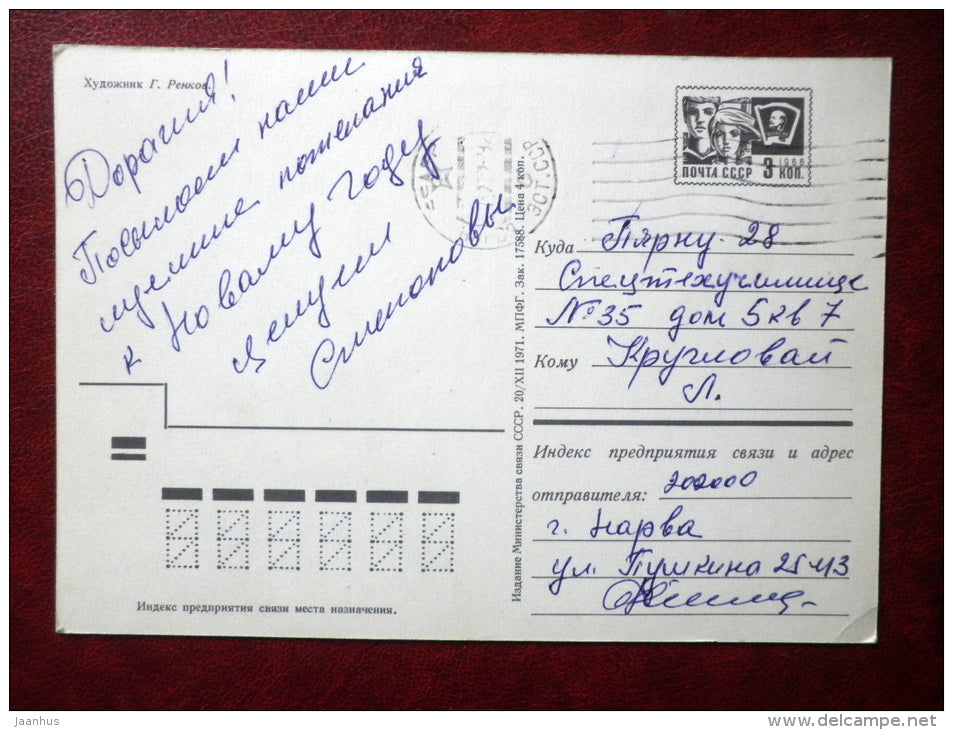 Художник Г. Ренков.
Дорогие!
Посылаем наши
лучшие пожелания
к Новому году
Целуем
ПОЧТА СССР 3 КОП.
1966
Куда Пярну-28
Спецтехучилище
№35 дом 5 кв 7
Кому Кругловай
Л.
Индекс предприятия связи и адрес
отправителя: 202000
г. Нарва
ул. Пушкина 25-43
Издание Министерства связи СССР. 20/XII 1971. МПФГ. Зак. 17588. Цена 4 коп.
Индекс предприятия связи места назначения.
Jaanhus
www.delcampe.net